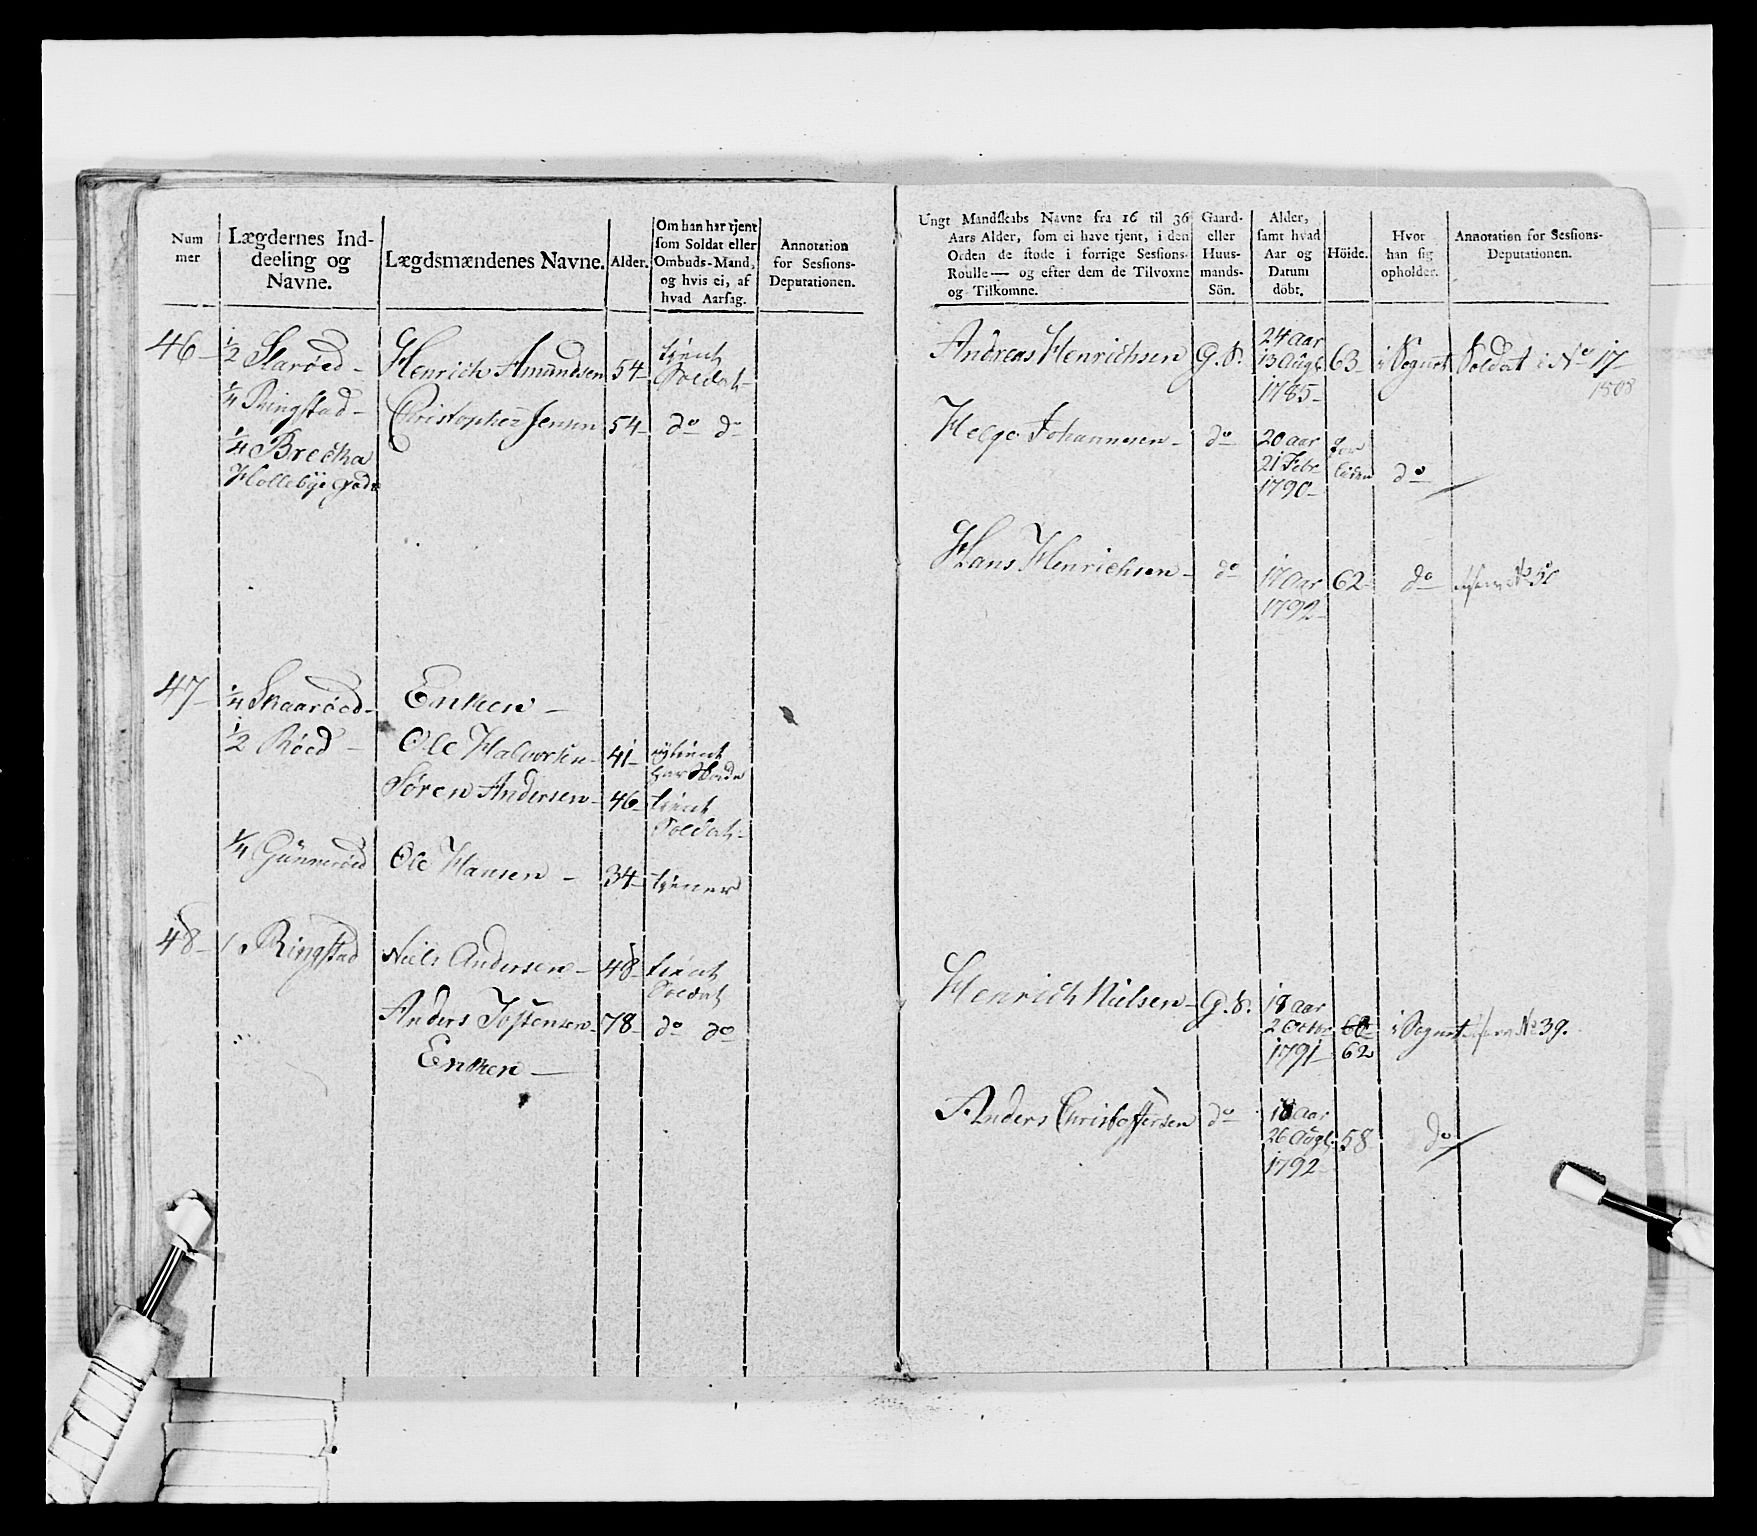 Num
mer
Lægdernes Ind-
deeling og
Navne.
Lægdsmændenes Navne.
Alder.
Om han har tjent
som Soldat eller
Ombuds-Mand,
og hvis ei, af
hvad Aarsag.
Annotation
for Sessions-
Deputationen.
46 ½ Skarøed - Henrich Amundsen 54 - tient
Soldat -
¼ Ringstad - Christopher Jensen 54 - do do
¼ Brecka
Hollebye Gods
47 - ¼ Skaarøed - Enken -
½ Röed - Ole Halvorsen - 41 - ey tient
har Skade
Søren Andersen - 46 - tient
Soldat -
¼ Gunnerøed Ole Hansen - 34 - tiener
48 - 1 Ringstad Niels Andersen - 48 - tient
Soldat
Anders Jostensen - 78 - do do
Enken -
Ungt Mandskabs Navne fra 16 til 36
Aars Alder, som ei have tjent, i den
Orden de stode i forrige Sessions-
Roulle — og efter dem de Tilvoxne
og Tilkomne.
Gaard-
eller
Huus-
mands-
Sön.
Alder,
samt hvad
Aar og
Datum
döbt.
Höide.
Hvor
han sig
opholder.
Annotation for Sessions-
Deputationen.
Andreas Henrichsen G. S. 24 aar
13 Augt. 63 - i Sognet Soldat i No 17
1785 - 1808
Helge Johannesen - do 20 aar
21 Febr
1790 - do
Hans Henrichsen - do 17 Aar 62 - do No 50
1792
Henrich Nielsen - G. S. 18 aar
2 Octbr 60 i Sognet No 39.
1791 62
Anders Christoffersen do 18 aar
26 Augt. 58 do
1792 -